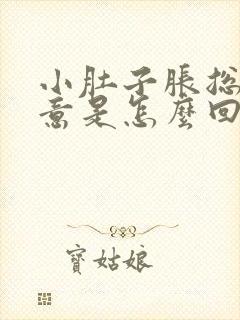 小肚子脹総
意是怎麼回
寶姑娘